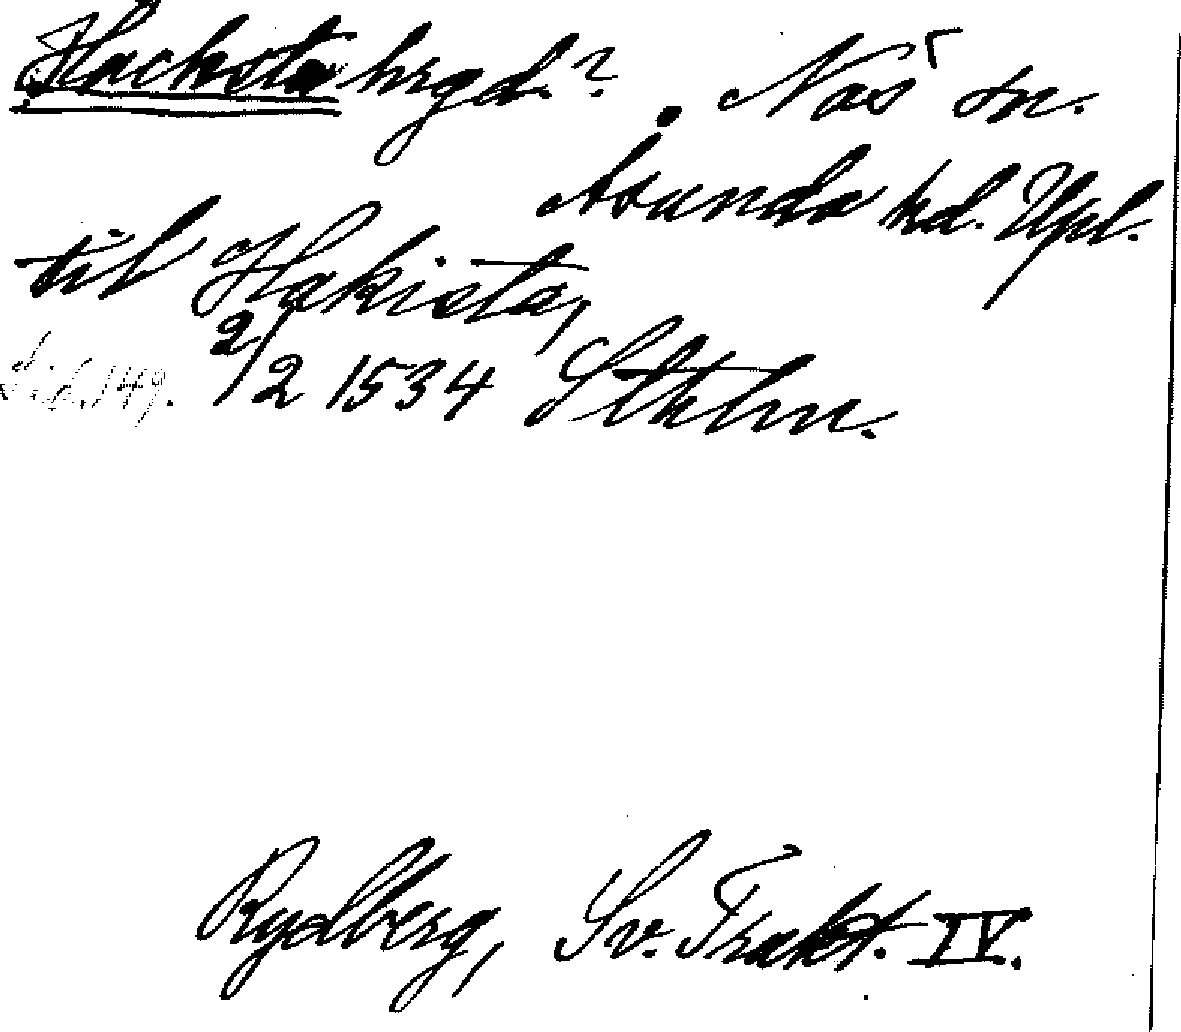 Hacksta hrgd? Näs sn.
Åsunda hd. Upl.
til Hakista,
2/2 1534 Sthlm.
S. 149.
Rydberg, Sv. Trakt. IV.